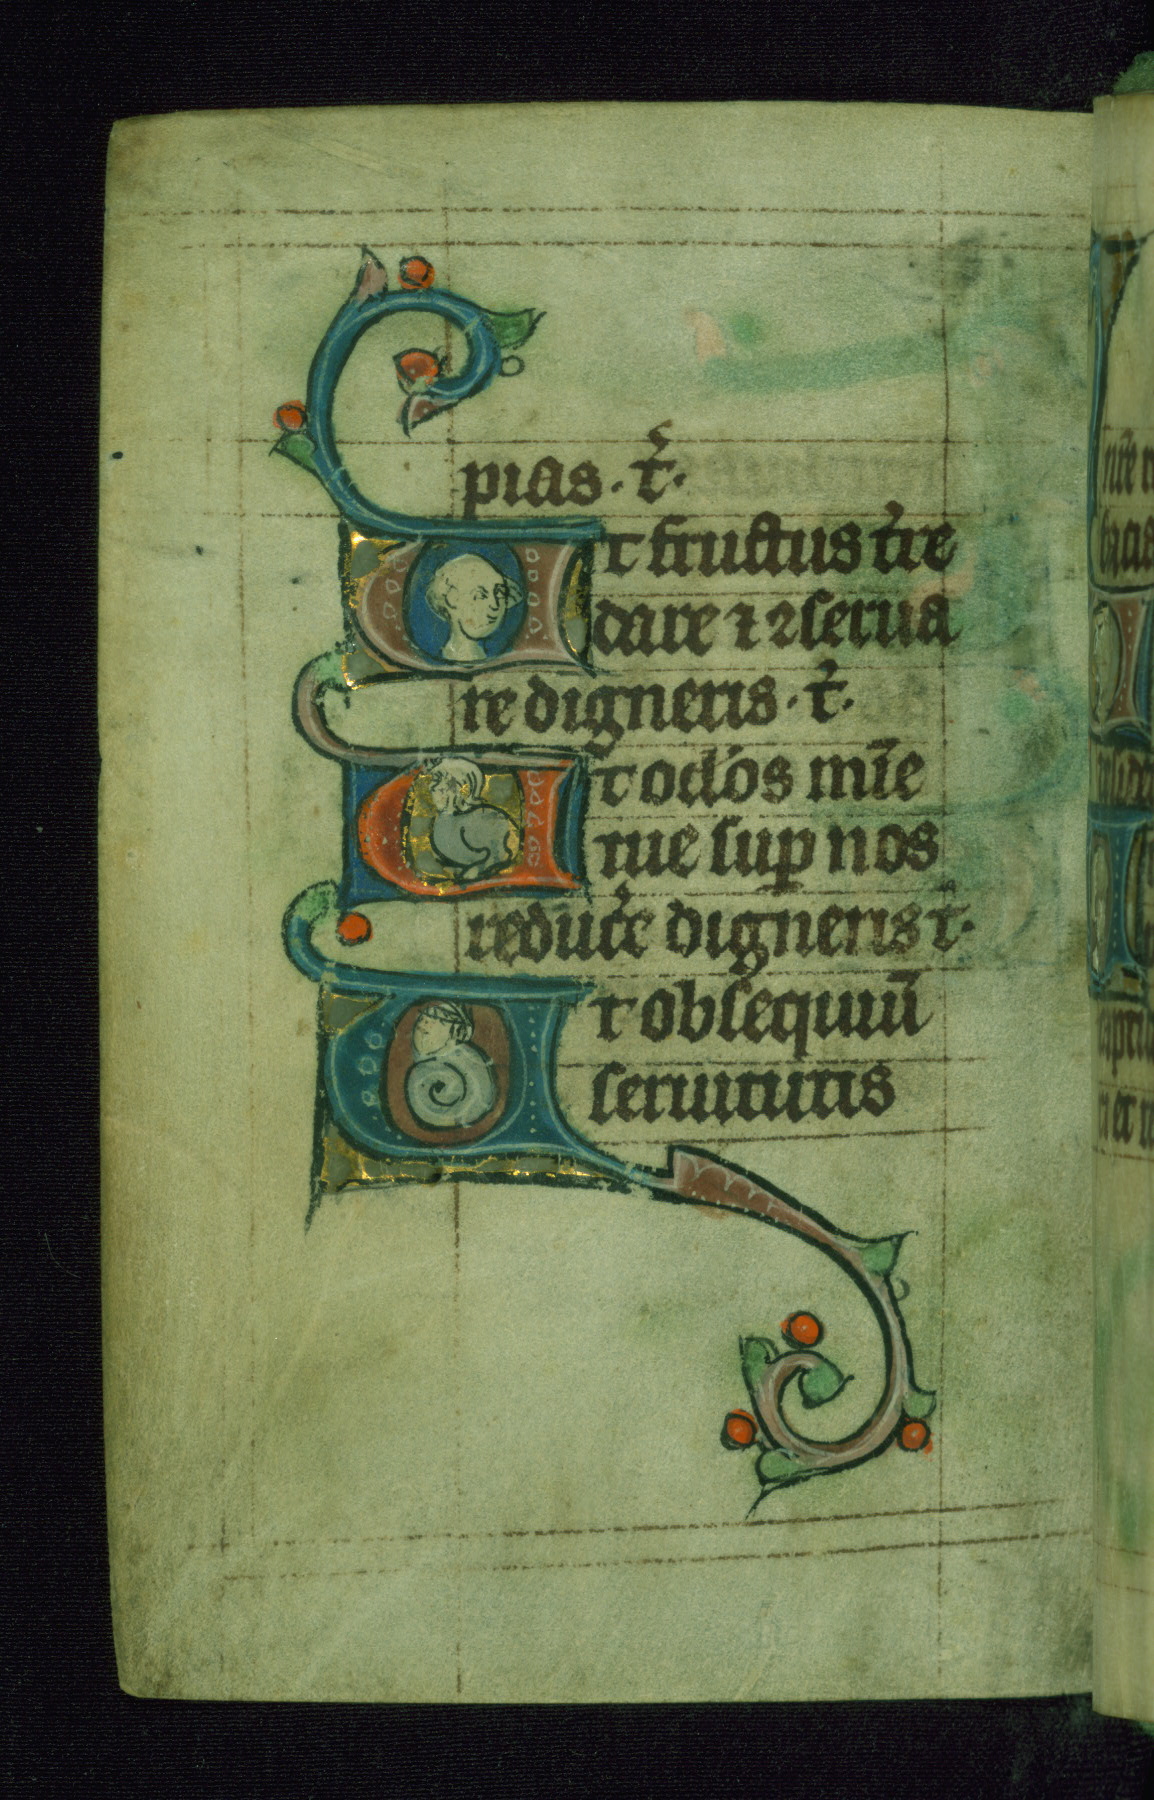 pias · t̄ ·
Et fructus t̄re
dare ⁊ ꝯserua
re digneris · t̄ ·
Et oc̄los mīe
tue sup nos
reducē digneris t̄ ·
Et obsequiū
seruitutis